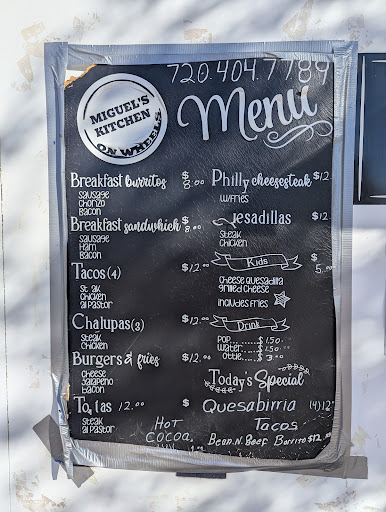 720.404.7789
MIGUEL'S
KITCHEN
ON WHEELS
Menu
Breakfast burritos $8.00
Sausage
Chorizo
Bacon
Breakfast sandwhich $8.00
Sausage
Ham
Bacon
Tacos (4) $12.00
St ak
Chicken
al Pastor
Chalupas (3) $12.00
Steak
Chicken
Burgers & fries $12.00
Cheese
Jalapeño
Bacon
To tas 12.00
Steak
al Pastor
HOT
COCOA
Philly cheesesteak $12.
W/FRIES
esadillas $12.
Steak
Chicken
Kids $5.00
Cheese Quesadilla
Grilled Cheese
Includes Fries
Drink
POP $1.50
Water 1.50
ottle $3.00
Today's Special
$ Quesabirria (4) 12
Tacos
Bean.N.Beef Burrito $12.00